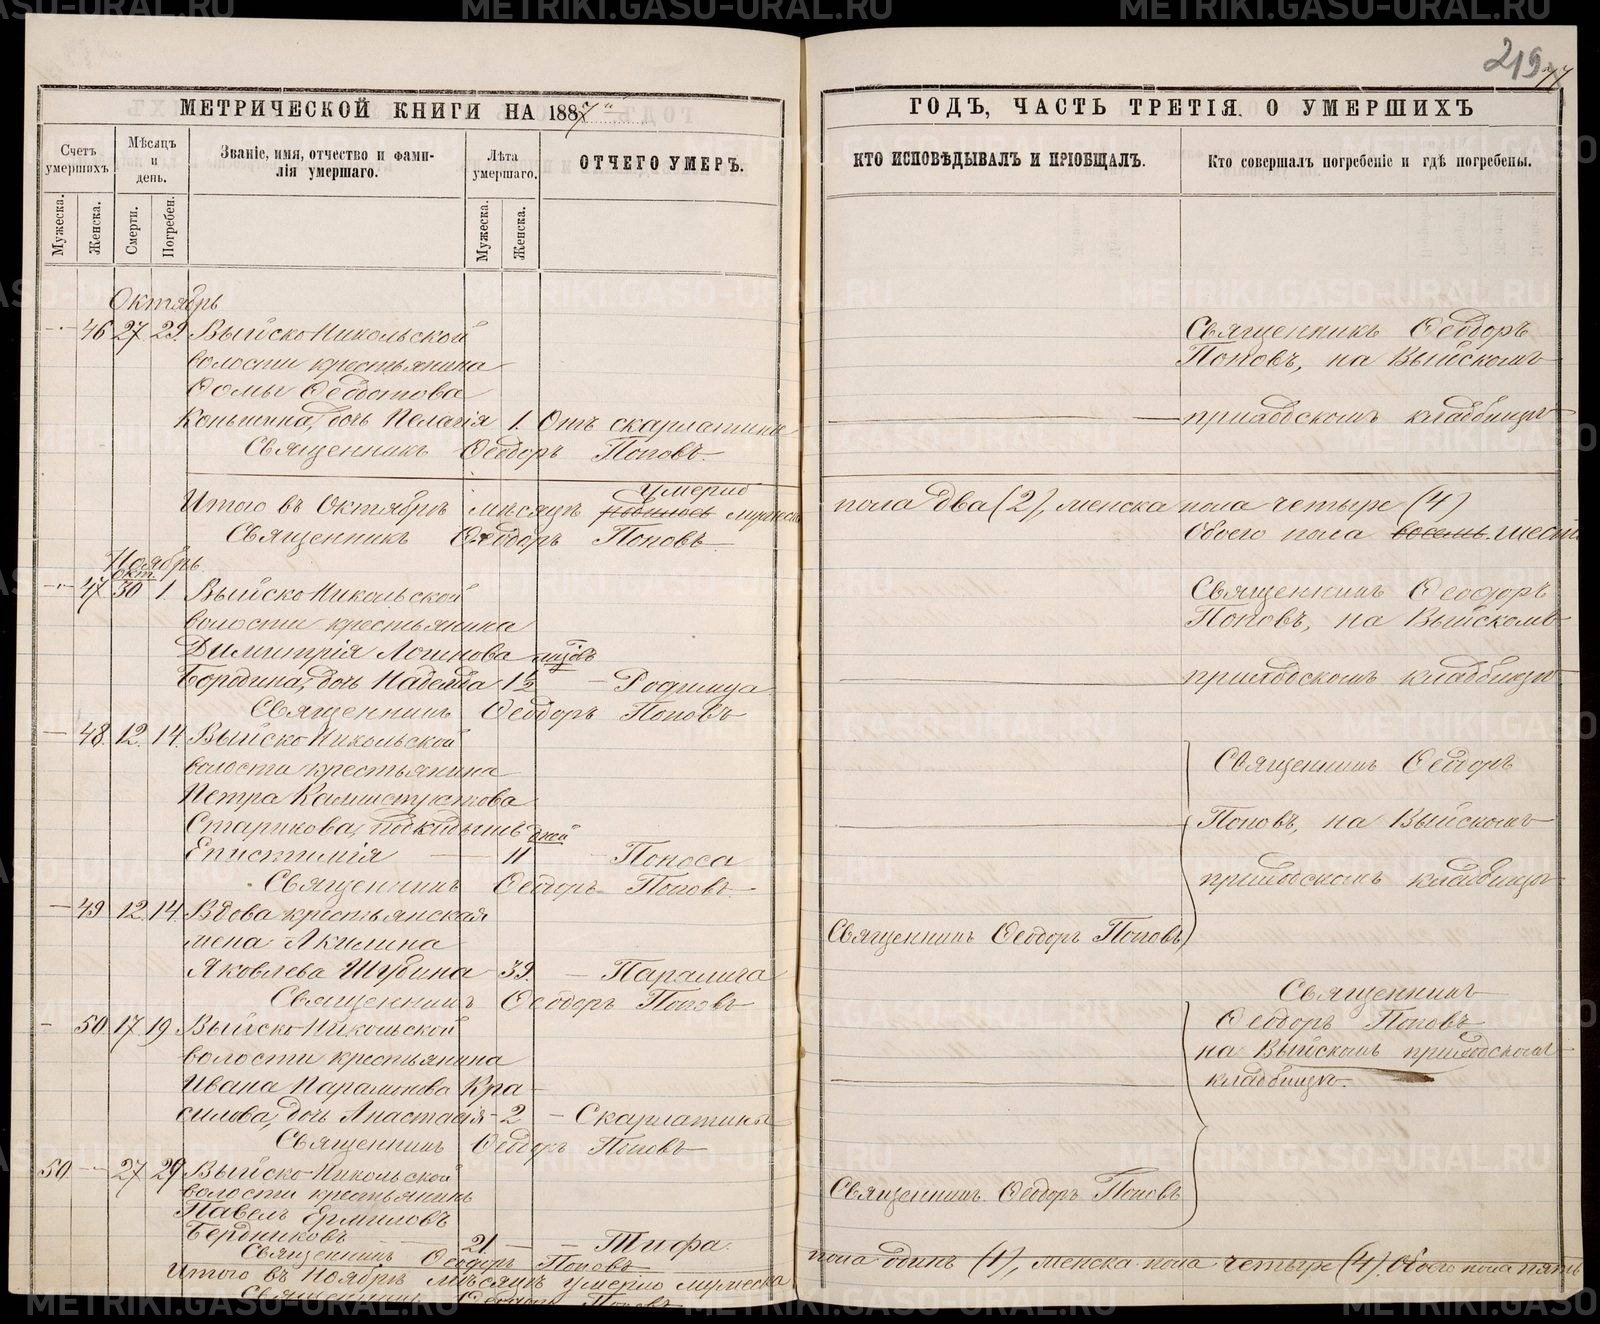 219
77
МЕТРИЧЕСКОЙ КНИГИ НА 1887й
Счетъ умершихъ.
Мѣсяцъ и день.
Званіе, имя, отчество и фами-
лія умершаго.
Лѣта умершаго.
ОТЧЕГО УМЕРЪ.
Мужеска.
Женска.
Смерти.
Погребен.
Мужеска.
Женска.
Октябрь
46 27 29. Выйско Никольской
волости крестьянина
Ѳомы Ѳеодотова
Коньшина, дочь Пелагія 1. Отъ скарлатины
Священникъ Ѳеодоръ Поповъ.
умерло
Итого въ Октябрѣ мѣсяцѣ родилось мужеска
Священникъ Ѳеодоръ Поповъ
Ноябрь
окт.
47 30 1. Выйско Никольской
волости крестьянина
Димитрія Логинова
Бородина, дочь Надежда 1½ – Родимца
Священникъ Ѳеодоръ Поповъ
48. 12. 14. Выйско Никольской
волости крестьянина
Петра Калистратова
Старикова, подкидышъ дней
Епистимія 11 Поноса
Священникъ Ѳеодоръ Поповъ
49 12. 14. Вдова крестьянская
жена Акилина
Яковлева Шубина 39. – Паралича
Священникъ Ѳеодоръ Поповъ
50 17 19 Выйско Никольской
волости крестьянина
Ивана Парамонова Кра
силова, дочь Анастасія – 2 – Скарлатины
Священникъ Ѳеодоръ Поповъ
50 27 29 Выйско Никольской
волости крестьянинъ
Павелъ Ермиловъ
Бердниковъ 21. – – Тифа.
Священникъ Ѳеодоръ Поповъ
Итого въ Ноябрѣ мѣсяцѣ умерло мужеска
Священникъ Ѳеодоръ Поповъ
ГОДЪ, ЧАСТЬ ТРЕТІЯ. О УМЕРШИХЪ
КТО ИСПОВѢДЫВАЛЪ И ПРІОБЩАЛЪ.
Кто совершалъ погребеніе и гдѣ погребены.
Священникъ Ѳеодоръ
Поповъ, на Выйскомъ
приходскомъ кладбищѣ
пола два (2), женска пола четыре (4)
Обоего пола восемь. шесть
Священникъ Ѳеодоръ
Поповъ, на Выйскомъ
приходскомъ кладбищѣ.
Священникъ Ѳеодоръ
Поповъ, на Выйскомъ
приходскомъ кладбищѣ
Священникъ Ѳеодоръ Поповъ
Священникъ
Ѳеодоръ Поповъ
на Выйскомъ приходскомъ
кладбищѣ.
Священникъ Ѳеодоръ Поповъ
пола одинъ (1), женска пола четыре (4). Обоего пола пять
METRIKI.GASO-URAL.RU